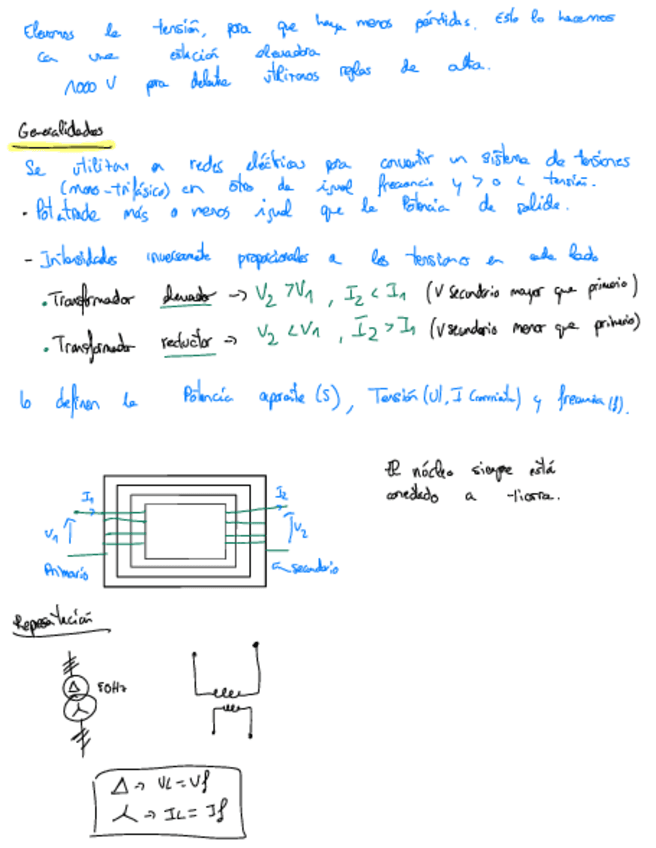 Elevamos la tensión, para que haya menos pérdidas. Esto lo hacemos
con una estación elevadora
1000 V para delante utilizamos reglas de alta.
Generalidades
Se utilizan en redes eléctricas para convertir un sistema de tensiones
(mono-trifásico) en otro de igual frecuencia y > o < tensión.
· Pot. entrada más o menos igual que la Potencia de salida.
- Intensidades inversamente proporcionales a las tensiones en cada lado
· Transformador elevador → V2 > V1 , I2 < I1 (V secundario mayor que primario)
· Transformador reductor → V2 < V1 , I2 > I1 (V secundario menor que primario)
lo definen la Potencia aparente (S), Tensión (U), I (corriente) y frecuencia (f).
El núcleo siempre está
conectado a tierra.
I1
I2
V1
V2
Primario
secundario
Representación
Δ 50Hz
Δ → VL = Vf
⅄ → IL = If